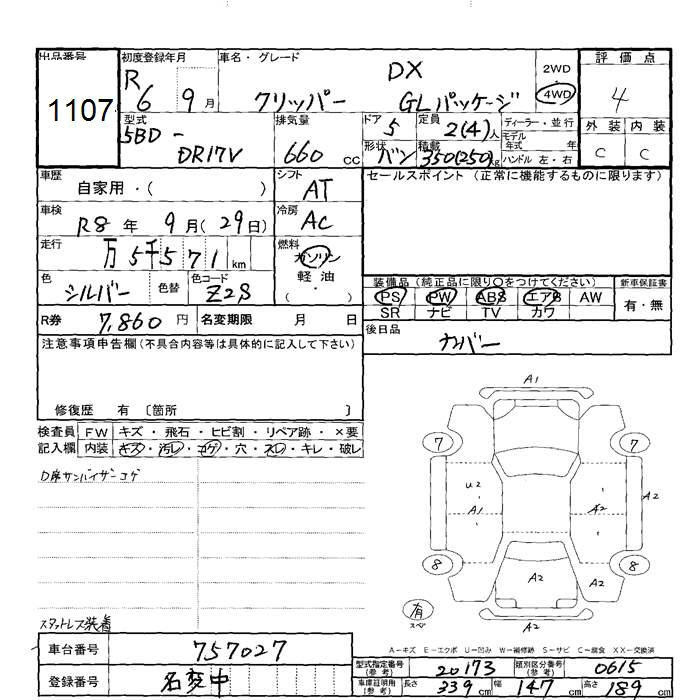 出品番号
1107
初度登録年月
R6 9月
車名・グレード
クリッパー DX GLパッケージ
2WD
4WD
評価点
4
外装 内装
C C
型式
5BD-
DR17V
排気量
660 cc
ドア 5
形状 バン
定員 2(4)人
積載 350(250)kg
ディーラー・並行
モデル年式 年
ハンドル 左・右
車歴
自家用・( )
シフト
AT
車検
R8年 9月(29日)
冷房
AC
走行
万 5千571 km
燃料
ガソリン
軽・油
( ・ )
色
シルバー
色替
色コード
Z2S
R券 7,860円
名変期限 月 日
セールスポイント(正常に機能するものに限ります)
装備品(純正品に限り○をつけてください)
PS PW ABS エアB AW
SR ナビ TV カワ
新車保証書
有・無
後日品
ナバー
注意事項申告欄(不具合内容等は具体的に記入して下さい)
修復歴 有 〔箇所 〕
検査員 FW キズ・飛石・ヒビ割・リペア跡・×要
記入欄 内装 キズ・汚レ・コゲ・穴・スレ・キレ・破レ
D席サンバイザーコゲ
スタットレス装着
A1
7
7
U2
A1
A2
A2
8
8
A2
A2
A2
有
スペ
A-キズ E-エクボ U-凹み W-補修跡 S-サビ C-腐食 XX-交換済
車台番号 757027
登録番号 名変中
型式指定番号(参考) 20173
類別区分番号(参考) 0615
車庫証明用(参考) 長さ 339cm 幅 147cm 高さ 189cm